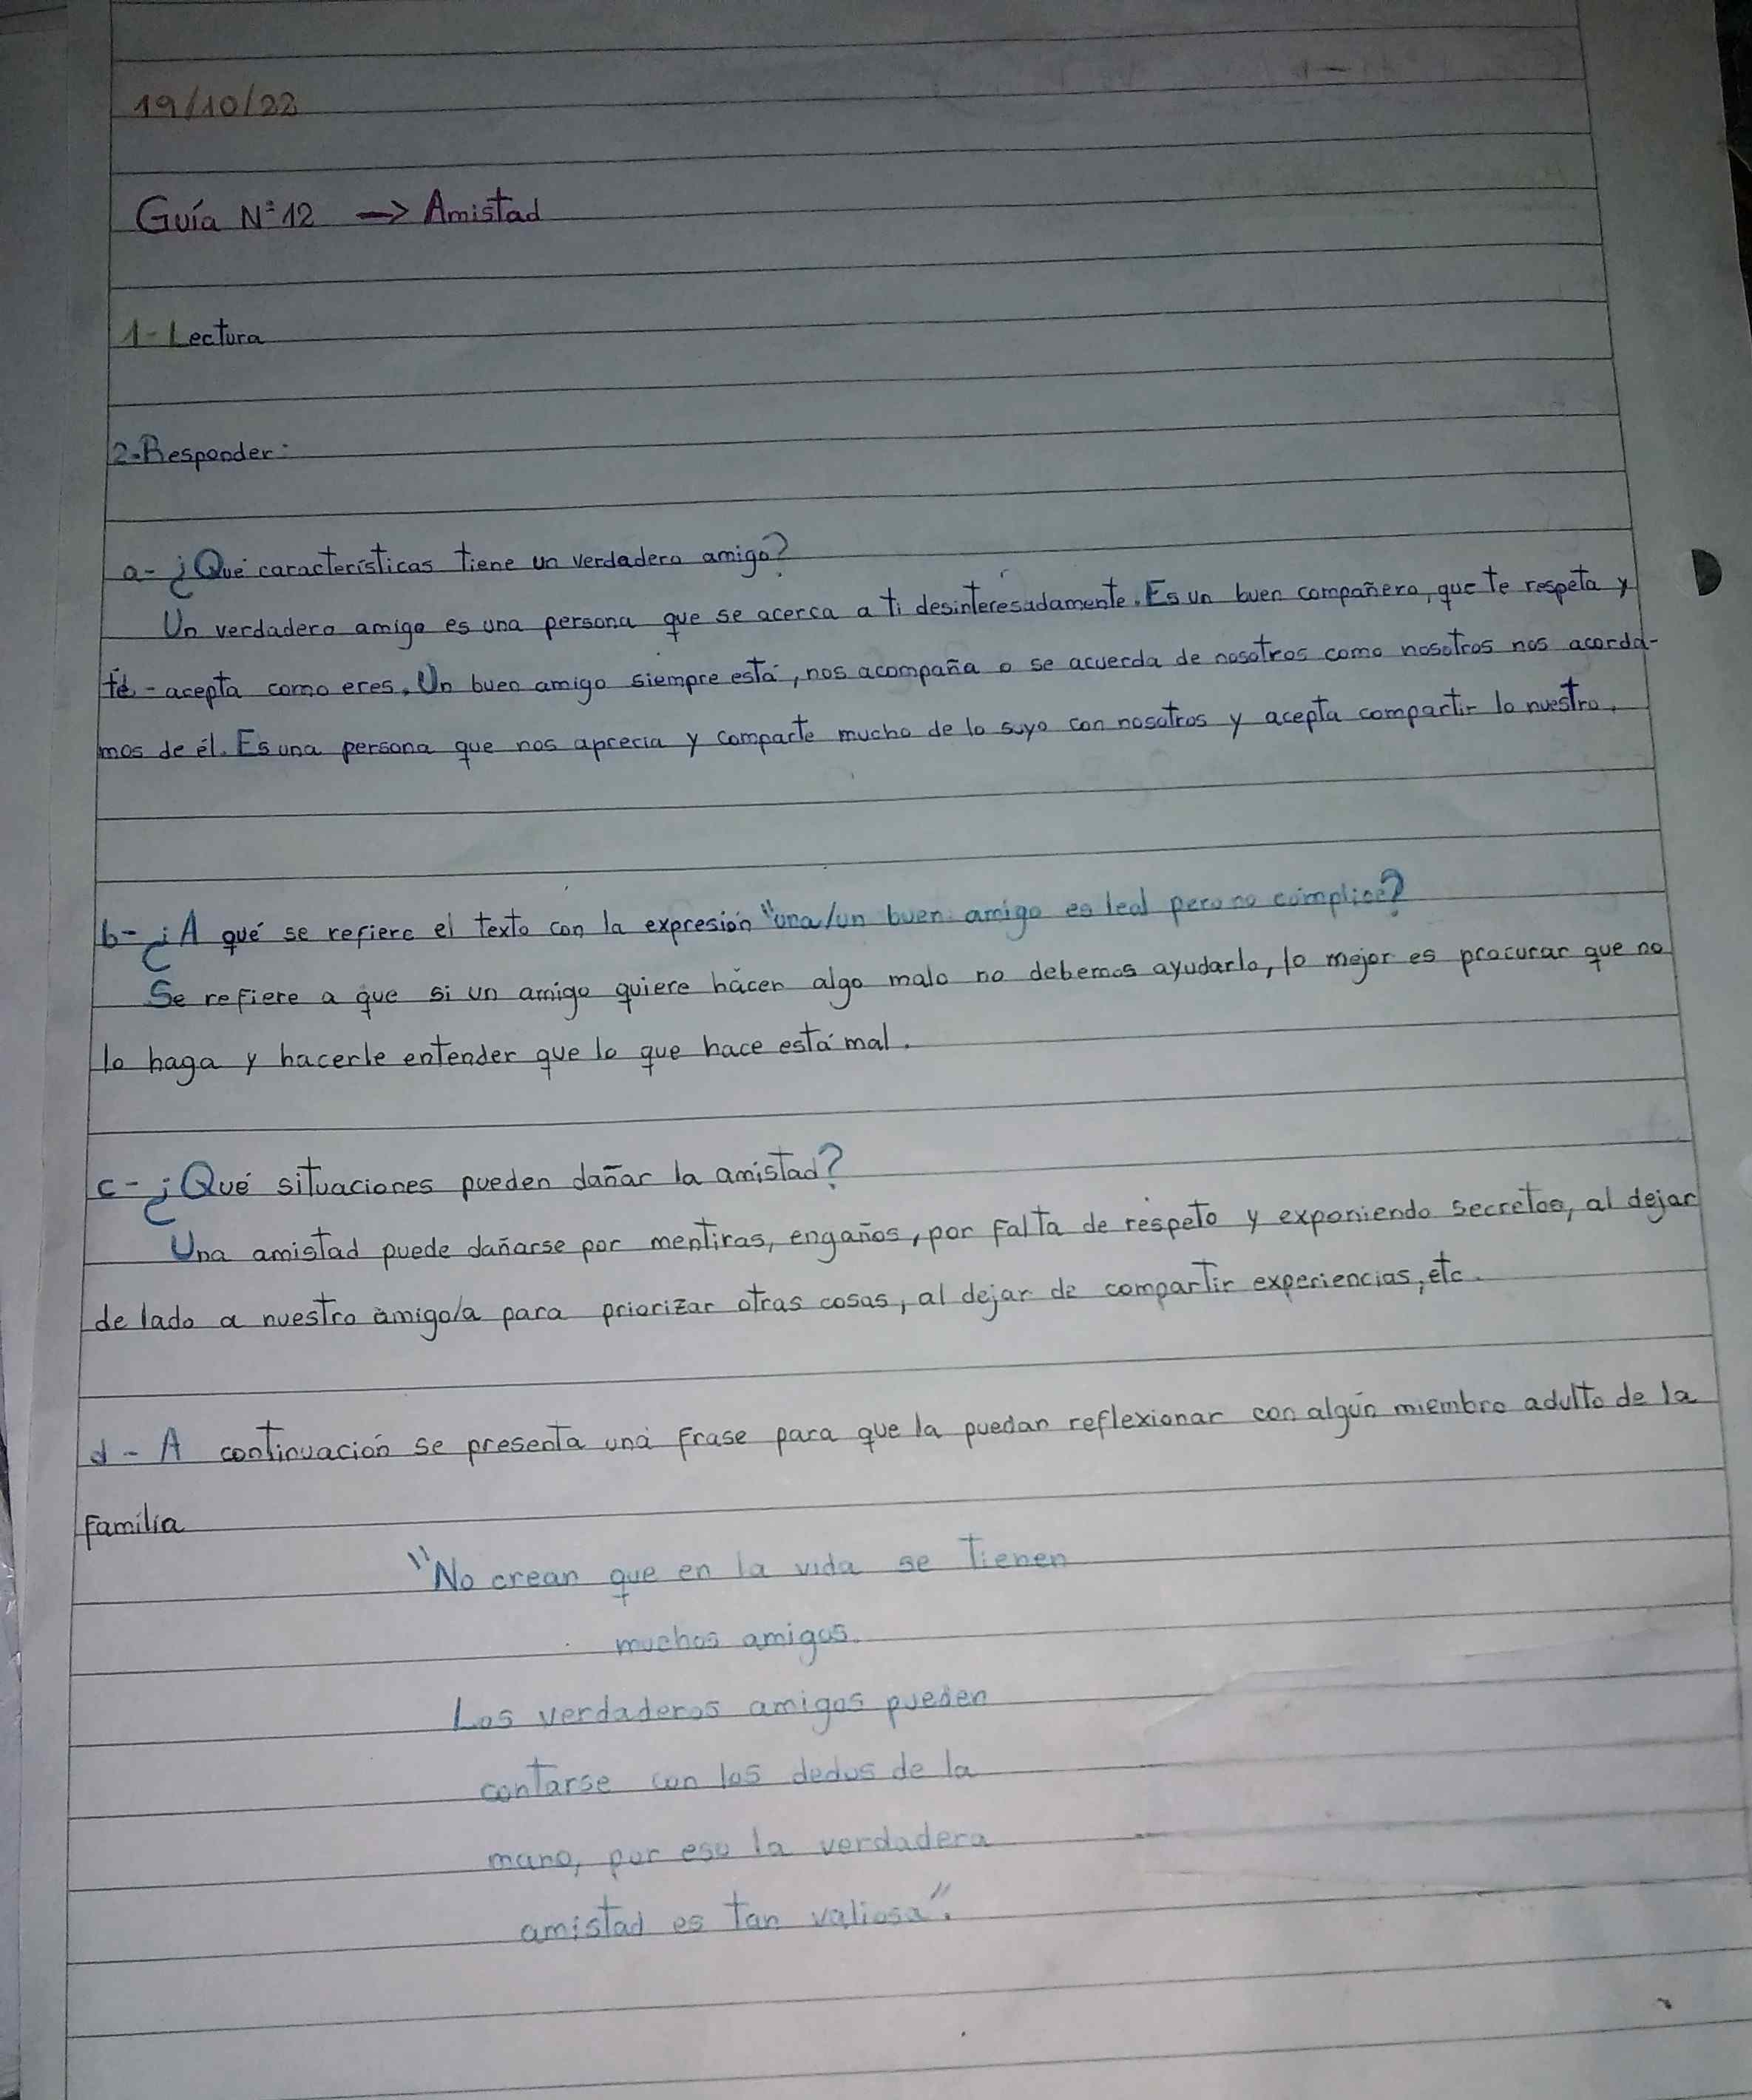 19/10/22
Guía N°12 → Amistad
1- Lectura
2-Responder:
a- ¿Qué características tiene un verdadero amigo?
Un verdadero amigo es una persona que se acerca a ti desinteresadamente. Es un buen compañero, que te respeta y
te acepta como eres. Un buen amigo siempre está, nos acompaña o se acuerda de nosotros como nosotros nos acorda-
mos de él. Es una persona que nos aprecia y comparte mucho de lo suyo con nosotros y acepta compartir lo nuestro.
b- ¿A qué se refiere el texto con la expresión "una/un buen amigo es leal pero no cómplice?
Se refiere a que si un amigo quiere hacer algo malo no debemos ayudarlo, lo mejor es procurar que no
lo haga y hacerle entender que lo que hace está mal.
c- ¿Qué situaciones pueden dañar la amistad?
Una amistad puede dañarse por mentiras, engaños, por falta de respeto y exponiendo secretos, al dejar
de lado a nuestro amigo/a para priorizar otras cosas, al dejar de compartir experiencias, etc.
d- A continuación se presenta una frase para que la puedan reflexionar con algún miembro adulto de la
familia
"No crean que en la vida se tienen
muchos amigos.
Los verdaderos amigos pueden
contarse con los dedos de la
mano, por eso la verdadera
amistad es tan valiosa".